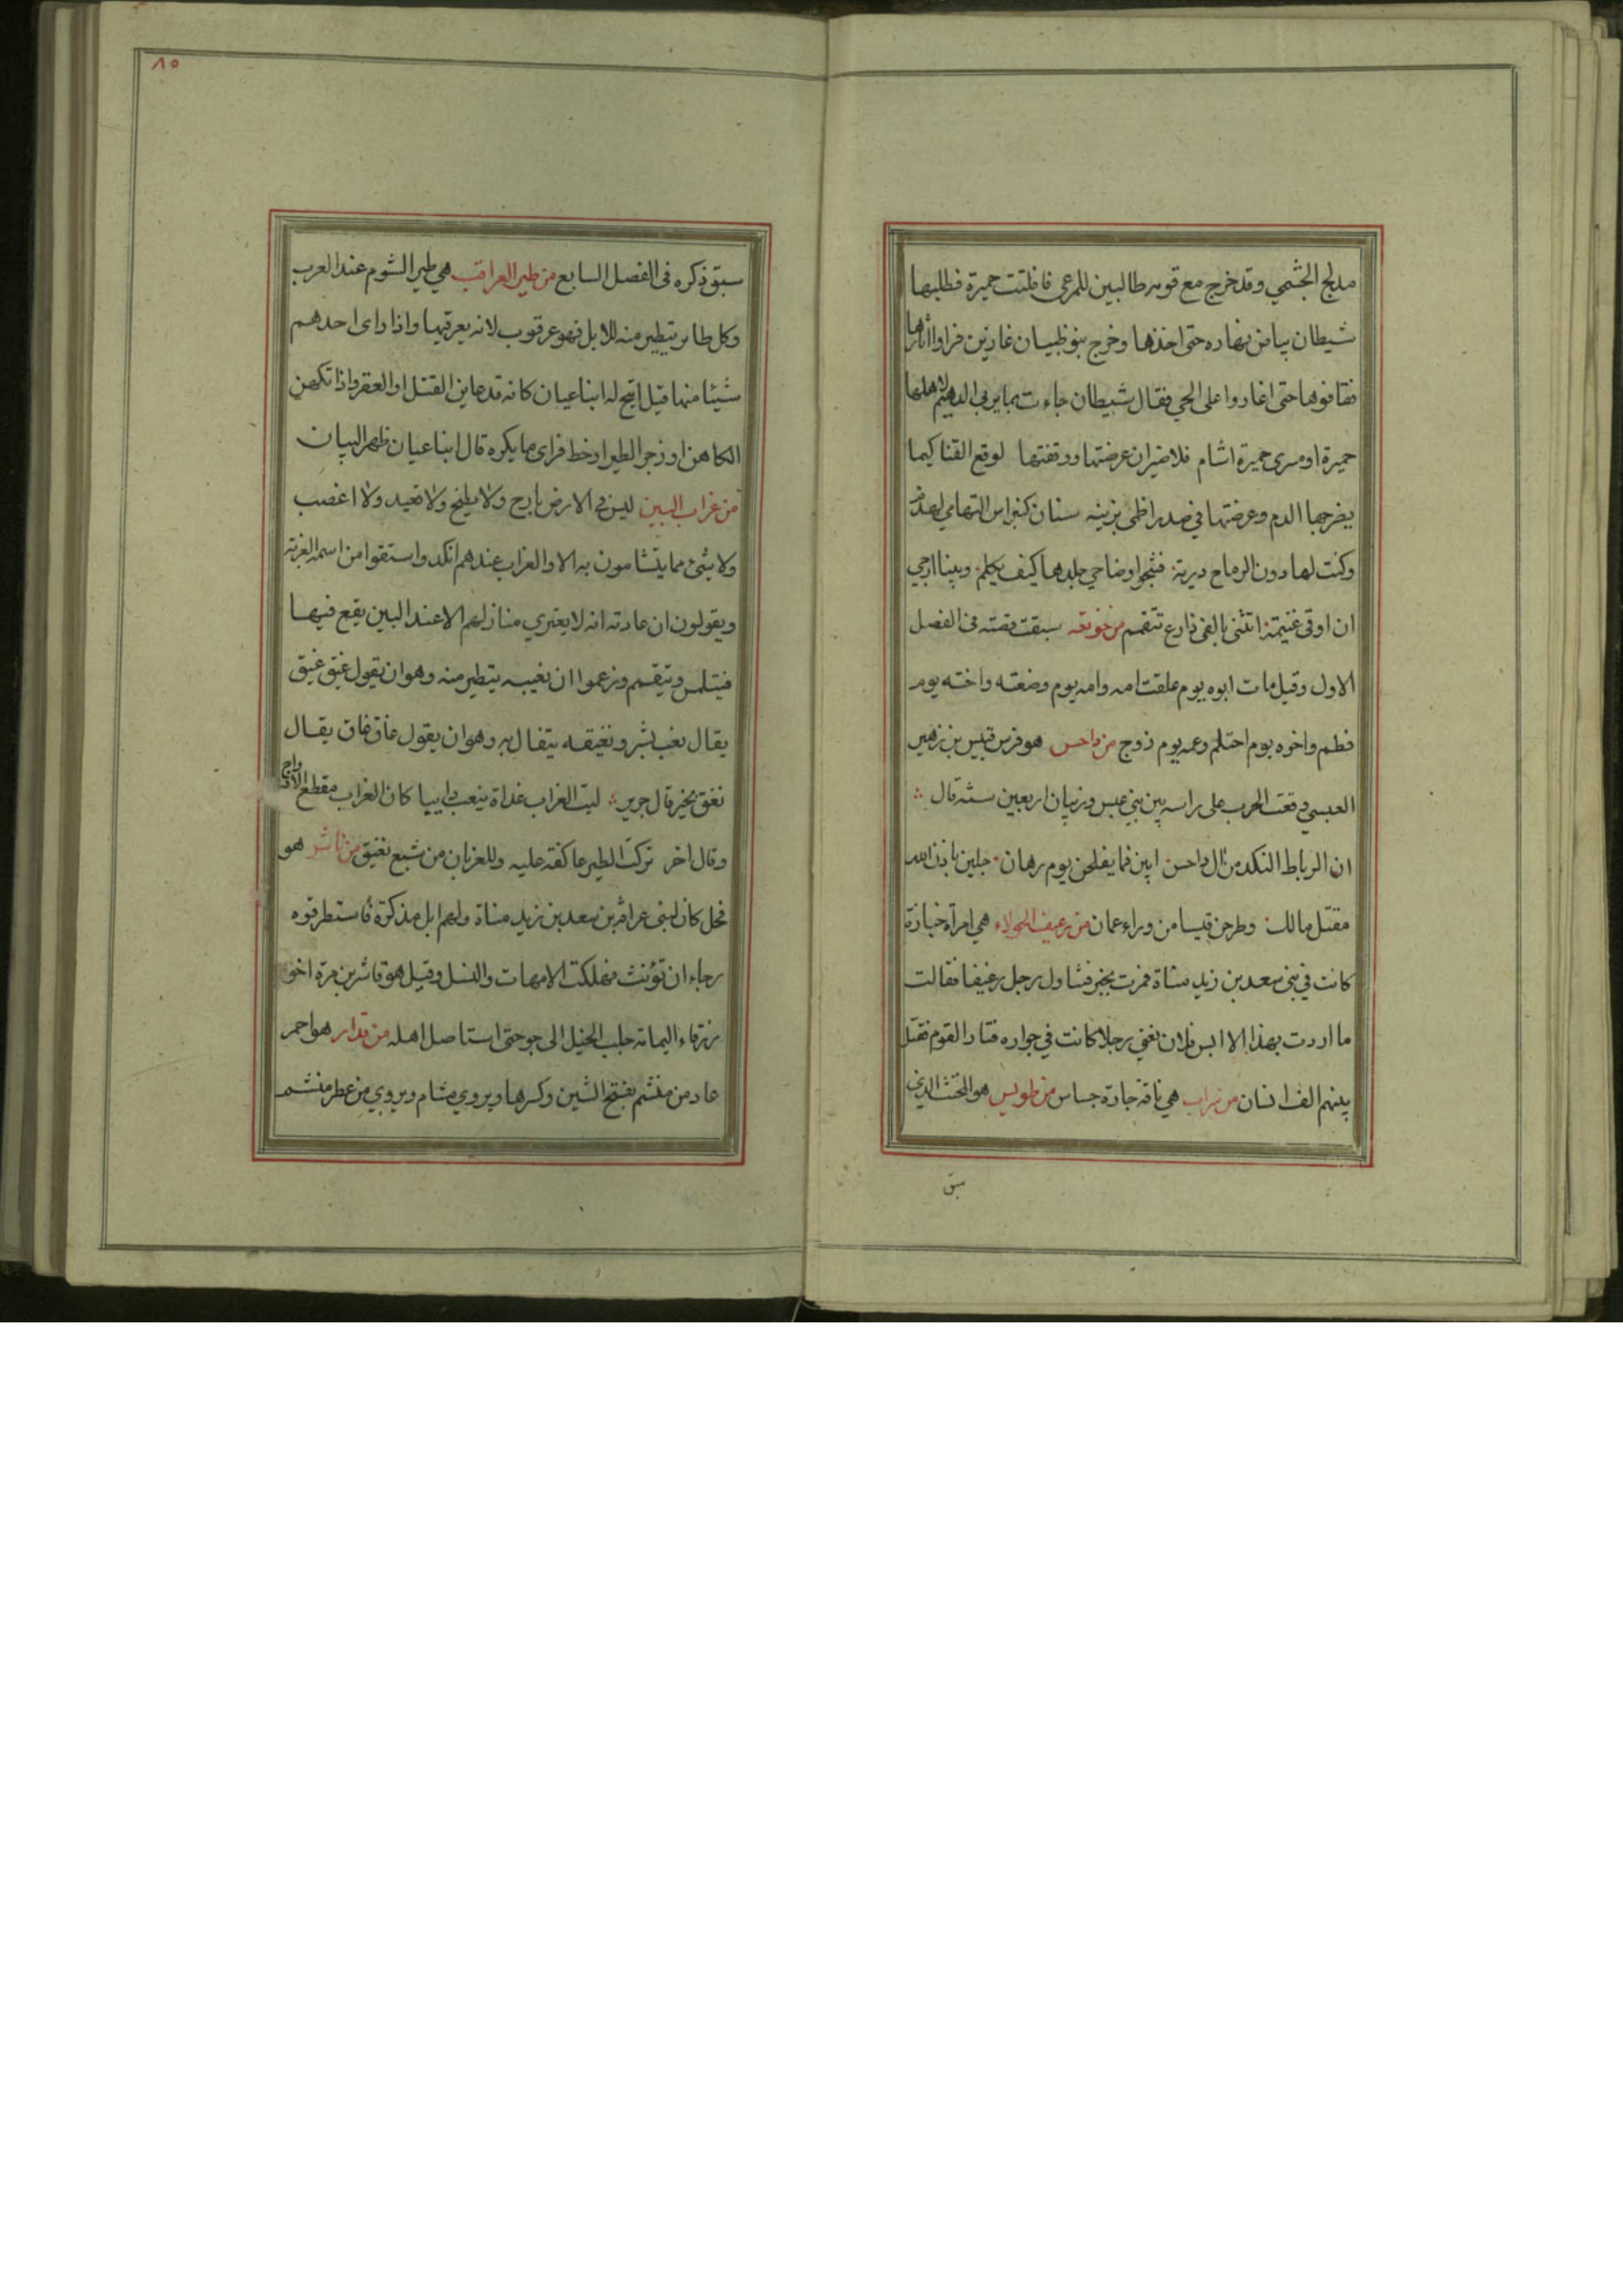 مدلج الجشمي وقد خرج مع قومه طالبين للمرعى فافلتت حميرة فطلبها
شيطان بياض نهاره حتى اخذها وخرج بنو ظبيان غازين فراوا اثارها
فقافوها حتى اغاروا على الحي فقال شيطان جاءت بما يزبى الدهيم لاهلها
حميرة او مسرى حميرة اشام فلا ضير ان عرضتها ووقفتها لوقع القنا كيما
يضرجها الدم وعرضتها في صدر اظمى يزينه سنان كنبراس التهامي لهذم
وكنت لها دون الرماح درية فتنجوا وضاحي جلدها كيف يكلم وبينا ارجي
ان اوفى غنيمة اتتني بالفى ذارع تتقمم من خوتعه سبقت قصته فى الفصل
الاول وقيل مات ابوه يوم علقت امه وامه يوم وضعته واخته يوم
فطم واخوه يوم احتلم وعمه يوم زوج من داحس هو فرس قيس بن زهير
العبسي وقعت الحرب على راسه بين بني عبس وذبيان اربعين سنة قال
ان الرباط النكد من ال داحس ابين فما يفلحن يوم رهان جلبن باذن الله
مقتل مالك وطرحن قيسا من وراء عمان من رغيف الحولاء هي امراة خبازة
كانت في بنى سعد بن زيد مناة فمرت بخبز فتناول رجل رغيفا فقالت
ما اردت بهذا الا ابس فلان تعني رجلا كانت في جواره فثار القوم فقتل
بينهم الف انسان من سراب هي ناقة جارة جساس من طويس هو المخنث الذي
سبق
٨٥
سبق ذكره فى الفصل السابع من طير العراقب هي طير الشوم عند العرب
وكل طاير يتطير منه للابل فهو عرقوب لانه يعرقبها واذا راى احدهم
شيئا منها قيل اتيح له ابنا عيان كانه قد عاين القتل او العقر واذا تكهن
الكاهن او زجر الطير او خط فراى ما يكره قال ابنا عيان ظهر البيان
من غراب البين ليس فى الارض بارح ولا نطيح ولا قعيد ولا اعضب
ولا شئ مما يتشامون به الا والغراب عندهم انكد واستقوا من اسمه الغربة
ويقولون ان عادته انه لا يعتري منازلهم الا عند البين يقع فيها
فيتلمس ويتقمم وزعموا ان نعيبه يتطير منه وهو ان يقول غيق غيق
يقال نعب بشر ونغيقه يتفال به وهو ان يقول غاق غاق يقال
نغق بخير قال جرير ليت الغراب غداة ينعب دايبا كان الغراب مقطع الاوداج
وقال اخر تركت الطير عاكفة عليه وللغربان من شبع نغيق من قاشر هو
فحل كان لبنى عوافة بن سعد بن زيد مناة ولهم ابل مذكرة فاستطرقوه
رجاء ان تؤنث فهلكت الامهات والنسل وقيل هو قاشر بن مرة اخو
زرقاء اليمامة جلب الخيل الى جو حتى استاصل اهله من قدار هو احمر
عاد من منشم بفتح الشين وكسرها ويروي مشام ويروي من عطر منشم